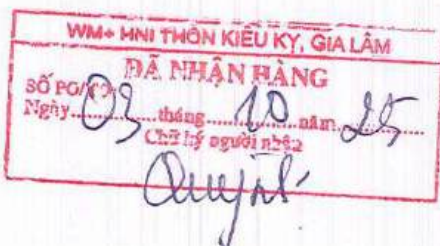 WM+ HNI THÔN KIÊU KỴ, GIA LÂM
ĐÃ NHẬN HÀNG
SỐ PO/
Ngày 03 tháng 10 năm 25
Chữ ký người nhận
Quỳnh